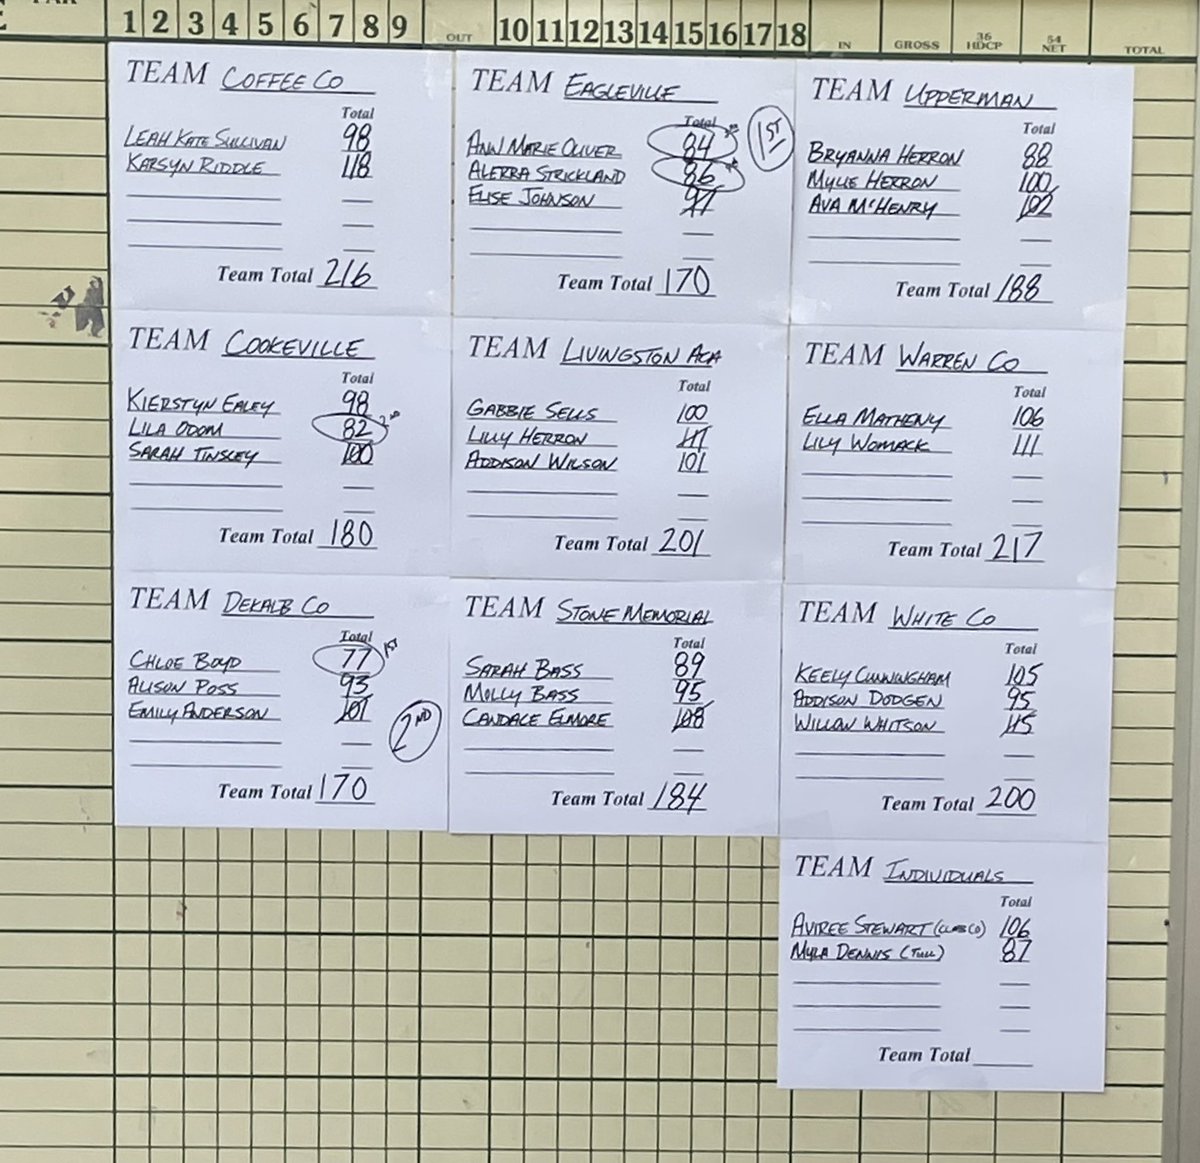 1 2 3 4 5 6 7 8 9 OUT 10 11 12 13 14 15 16 17 18 IN GROSS 36 HDCP 54 NET TOTAL
TEAM COFFEE CO
Total
LEAH KATE SULLIVAN 98
KARSYN RIDDLE 118
Team Total 216
TEAM EAGLEVILLE
Total
1ST
ANN MARIE OLIVER 84
ALERRA STRICKLAND 86
ELISE JOHNSON 97
Team Total 170
TEAM UPPERMAN
Total
BRYANNA HERRON 88
MYLIE HERRON 100
AVA McHENRY 102
Team Total 188
TEAM COOKEVILLE
Total
KIERSTYN EALEY 98
LILA ODOM 82 2ND
SARAH TINSLEY 100
Team Total 180
TEAM LIVINGSTON ACA
Total
GABBIE SELLS 100
LILLY HERRON
ADDISON WILSON 101
Team Total 201
TEAM WARREN CO
Total
ELLA MATHENY 106
LILY WOMACK 111
Team Total 217
TEAM DEKALB CO
Total
CHLOE BOYD 77 1ST
ALISON POSS 93
EMILY ANDERSON 101
2ND
Team Total 170
TEAM STONE MEMORIAL
Total
SARAH BASS 89
MOLLY BASS 95
CANDACE ELMORE 108
Team Total 184
TEAM WHITE CO
Total
KEELY CUNNINGHAM 105
ADDISON DODGEN 95
WILLOW WHITSON 115
Team Total 200
TEAM INDIVIDUALS
Total
AVIREE STEWART 106
MYLA DENNIS (TULL) 87
Team Total